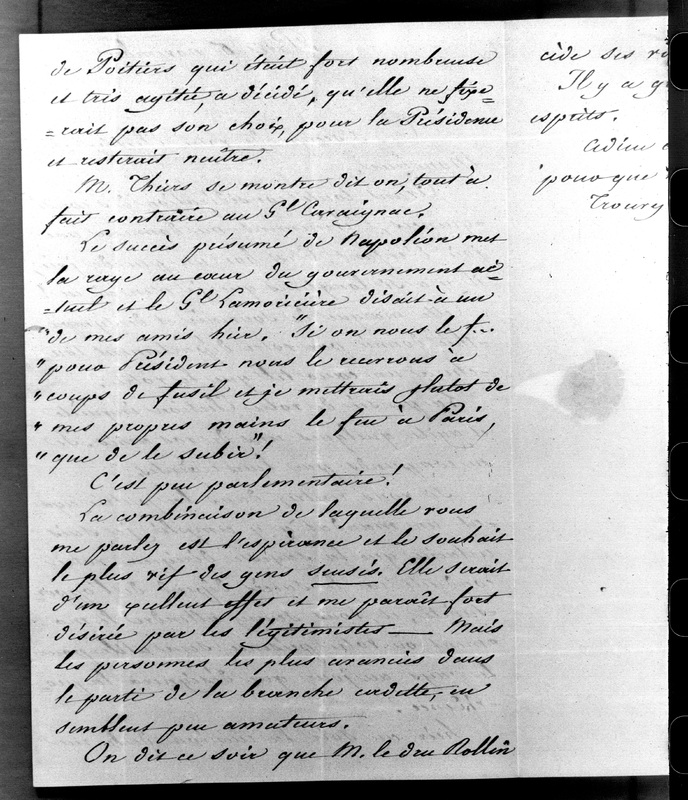 de Poitiers qui était fort nombreuse
et très agitée, a décidé, qu'elle ne fixe=
=rait pas son choix, pour la Présidence
et resterait neutre.
M. Thiers se montre dit on, tout à
fait contraire au Gl Cavaignac.
Le succès présumé de Napoléon met
la rage au cœur du gouvernement ac=
=tuel et le Gl Lamoricière disait à un
"de mes amis hier. "Si on nous le f...
"pour Président nous le recevrons à
"coups de fusil et je mettrais plutot de
"mes propres mains le feu à Paris,
"que de le subir"!
C'est peu parlementaire!
La combinaison de laquelle vous
me parlez est l'espérance et le souhait
le plus vif des gens sensés. Elle serait
d'un excellent effet et me paraît fort
désirée par les légitimistes — Mais
les personnes les plus avancées dans
le parti de la branche cadette, en
semblent peu amateurs.
On dit ce soir que M. le dru Rollin
cide ses
Il y a
esprits.
Adieu
pour que